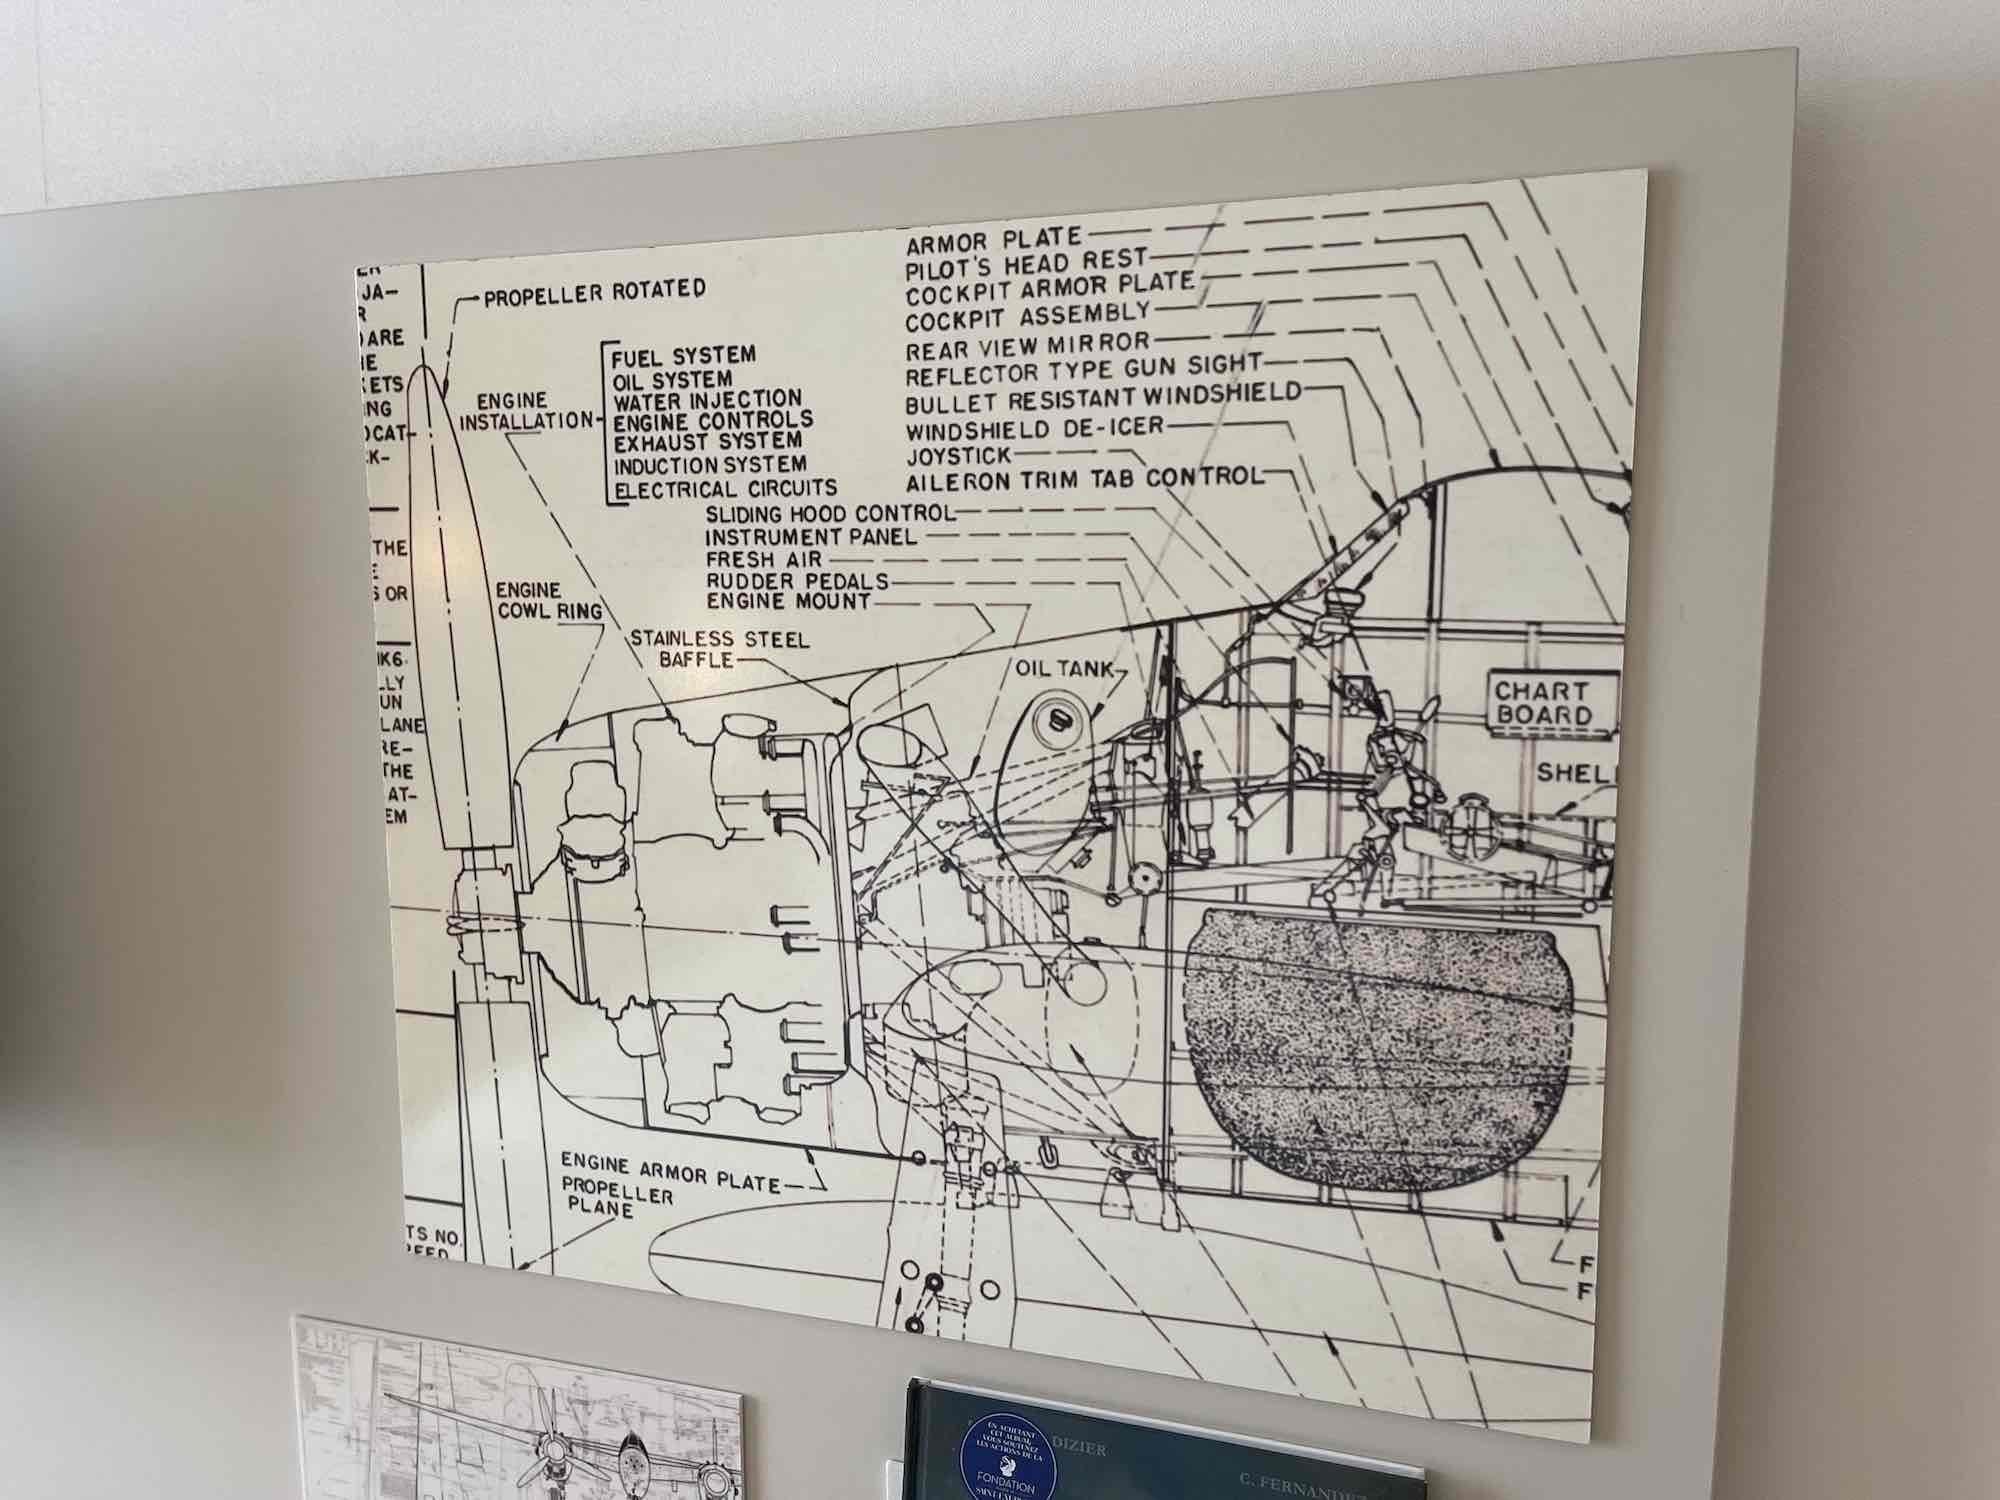 JA-
ARE
ETS
NG
OCAT-
K-
THE
S OR
K6.
LLY
UN
LANE
RE-
THE
AT-
EM
TS NO.
PROPELLER ROTATED
ENGINE
INSTALLATION
FUEL SYSTEM
OIL SYSTEM
WATER INJECTION
ENGINE CONTROLS
EXHAUST SYSTEM
INDUCTION SYSTEM
ELECTRICAL CIRCUITS
ARMOR PLATE
PILOT'S HEAD REST
COCKPIT ARMOR PLATE
COCKPIT ASSEMBLY
REAR VIEW MIRROR
REFLECTOR TYPE GUN SIGHT
BULLET RESISTANT WINDSHIELD
WINDSHIELD DE-ICER
JOYSTICK
AILERON TRIM TAB CONTROL
SLIDING HOOD CONTROL
INSTRUMENT PANEL
FRESH AIR
RUDDER PEDALS
ENGINE MOUNT
ENGINE
COWL RING
STAINLESS STEEL
BAFFLE
OIL TANK
CHART
BOARD
SHELL
ENGINE ARMOR PLATE
PROPELLER
PLANE
F
F
DIZIER
C. FERNANDEZ
EN ACHETANT
CET ALBUM,
VOUS SOUTENEZ
LES ACTIONS DE LA
FONDATION